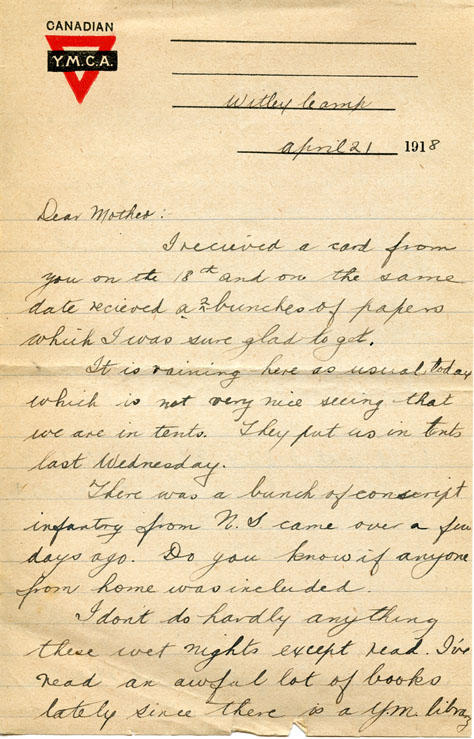 CANADIAN
Y.M.C.A.
Witley Camp
April 21 1918
Dear Mother:
I recieved a card from
you on the 18th and on the same
date recieved a 2 bunches of papers
which I was sure glad to get.
It is raining here as usual today
which is not very nice seeing that
we are in tents. They put us in tents
last Wednesday.
There was a bunch of conscript
infantry from N.S came over a few
days ago. Do you know if anyone
from home was included.
I dont do hardly anything
these wet nights except read. I've
read an awful lot of books
lately since there is a Y.M. library